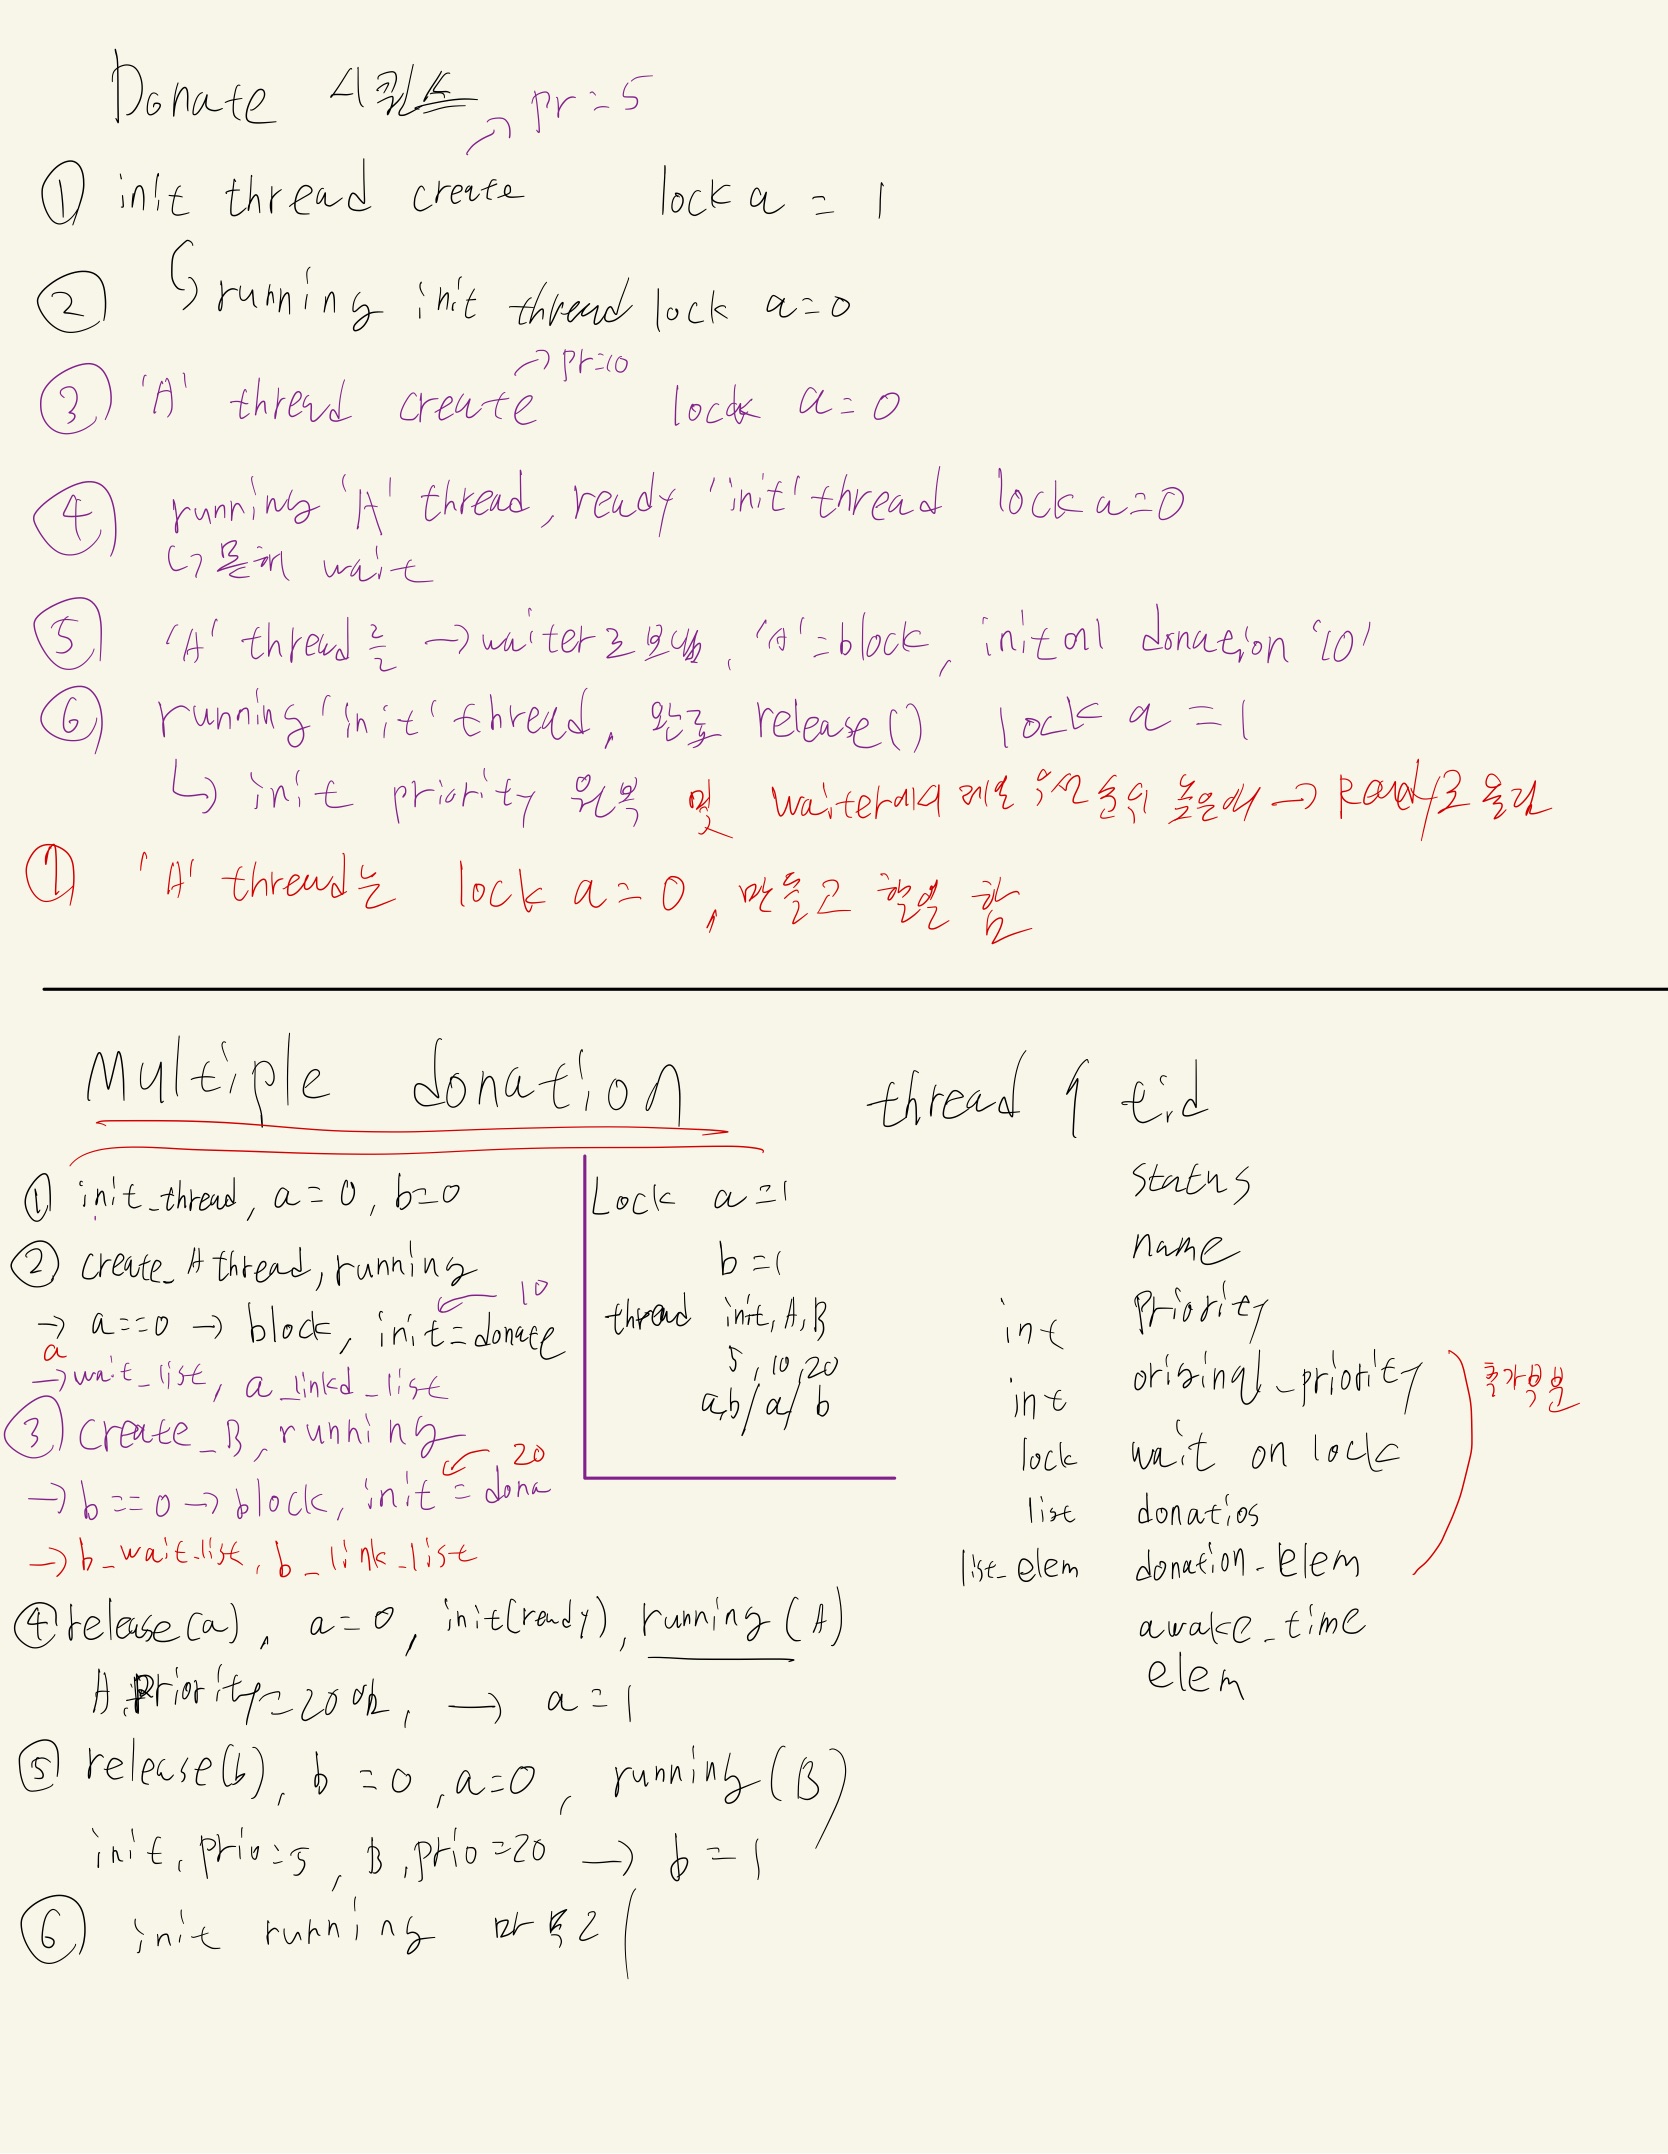 Donate 시퀀스
pr=5
① init thread create lock a = 1
② ↳ running init thread lock a=0
→ pr=10
③ 'A' thread create lock a=0
④ running 'A' thread, ready 'init' thread lock a=0
↳ 못해 wait
⑤ 'A' thread를 → waiter로 보냄, 'A'=block, init에 donation '10'
⑥ running 'init' thread, 완료 release() lock a = 1
↳ init priority 원복 및 waiter에서 제일 우선순위 높은애 → Ready로 올림
⑦ 'A' thread는 lock a=0, 만들고 할일 함
Multiple donation
① init_thread, a=0, b=0
② create_A thread, running
← 10
→ a==0 → block, init=donate
a
→ wait_list, a_linkd_list
③ create_B, running
← 20
→ b==0 → block, init = dona
→ b_wait_list, b_link_list
④ release(a), a=0, init(ready), running(A)
A.priority=20 → a=1
⑤ release(b), b=0, a=0, running(B)
init.prio=5, B.prio=20 → b=1
⑥ init running
Lock a=1
b=1
thread init, A, B
5, 10, 20
a,b/ a/ b
thread { tid
status
name
int priority
int original_priority
추가부분
lock wait on lock
list donatios
list_elem donation_elem
awake_time
elem